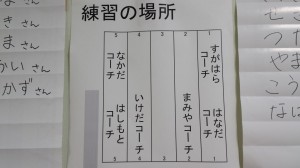 練習の場所
5 4 2 1
すがはらコーチ
はなだコーチ
まみやコーチ
いけだコーチ
なかだコーチ
はしもとコーチ
5 4 2 1
きさん
まさん
かいさん
かずさん
せこ
つた
やま
こう
なに